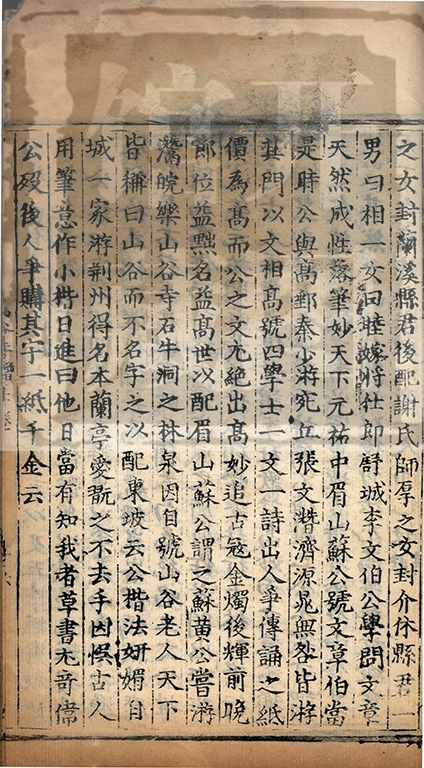 之女封蘭溪縣君後配謝氏師厚之女封介休縣君一
男曰相一女曰睦嫁將仕郎舒城李文伯公學問文章
天然成性落筆妙天下元祐中眉山蘇公號文章伯當
是時公與高郵秦少游宛丘張文潛濟源晁無咎皆游
其門以文相高號四學士一文一詩出人爭傳誦之紙
價為高而公之文尤絕出高妙追古冠金燭後輝前晚
節位益黜名益高世以配眉山蘇公謂之蘇黃公嘗游
灊皖樂山谷寺石牛洞之林泉因自號山谷老人天下
皆稱曰山谷而不名字之以配東坡云公楷法妍媚自
城一家游荊州得名本蘭亭愛翫之不去手因悞古人
用筆意作小楷日進曰他日當有知我者草書尤奇偉
公歿後人爭購其字一紙千金云